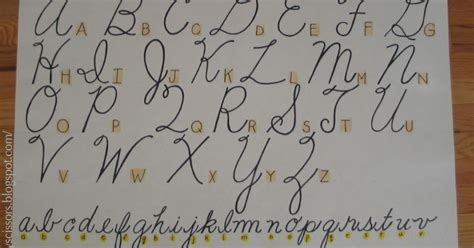 A A B B C C D D E E F F G G
H H I I J J K K L L M M N N
O O P P Q Q R R S S T T U U
V V W W X X Y Y Z Z
a b c d e f g h i j k l m n o p q r s t u v
scissors.blogspot.com/